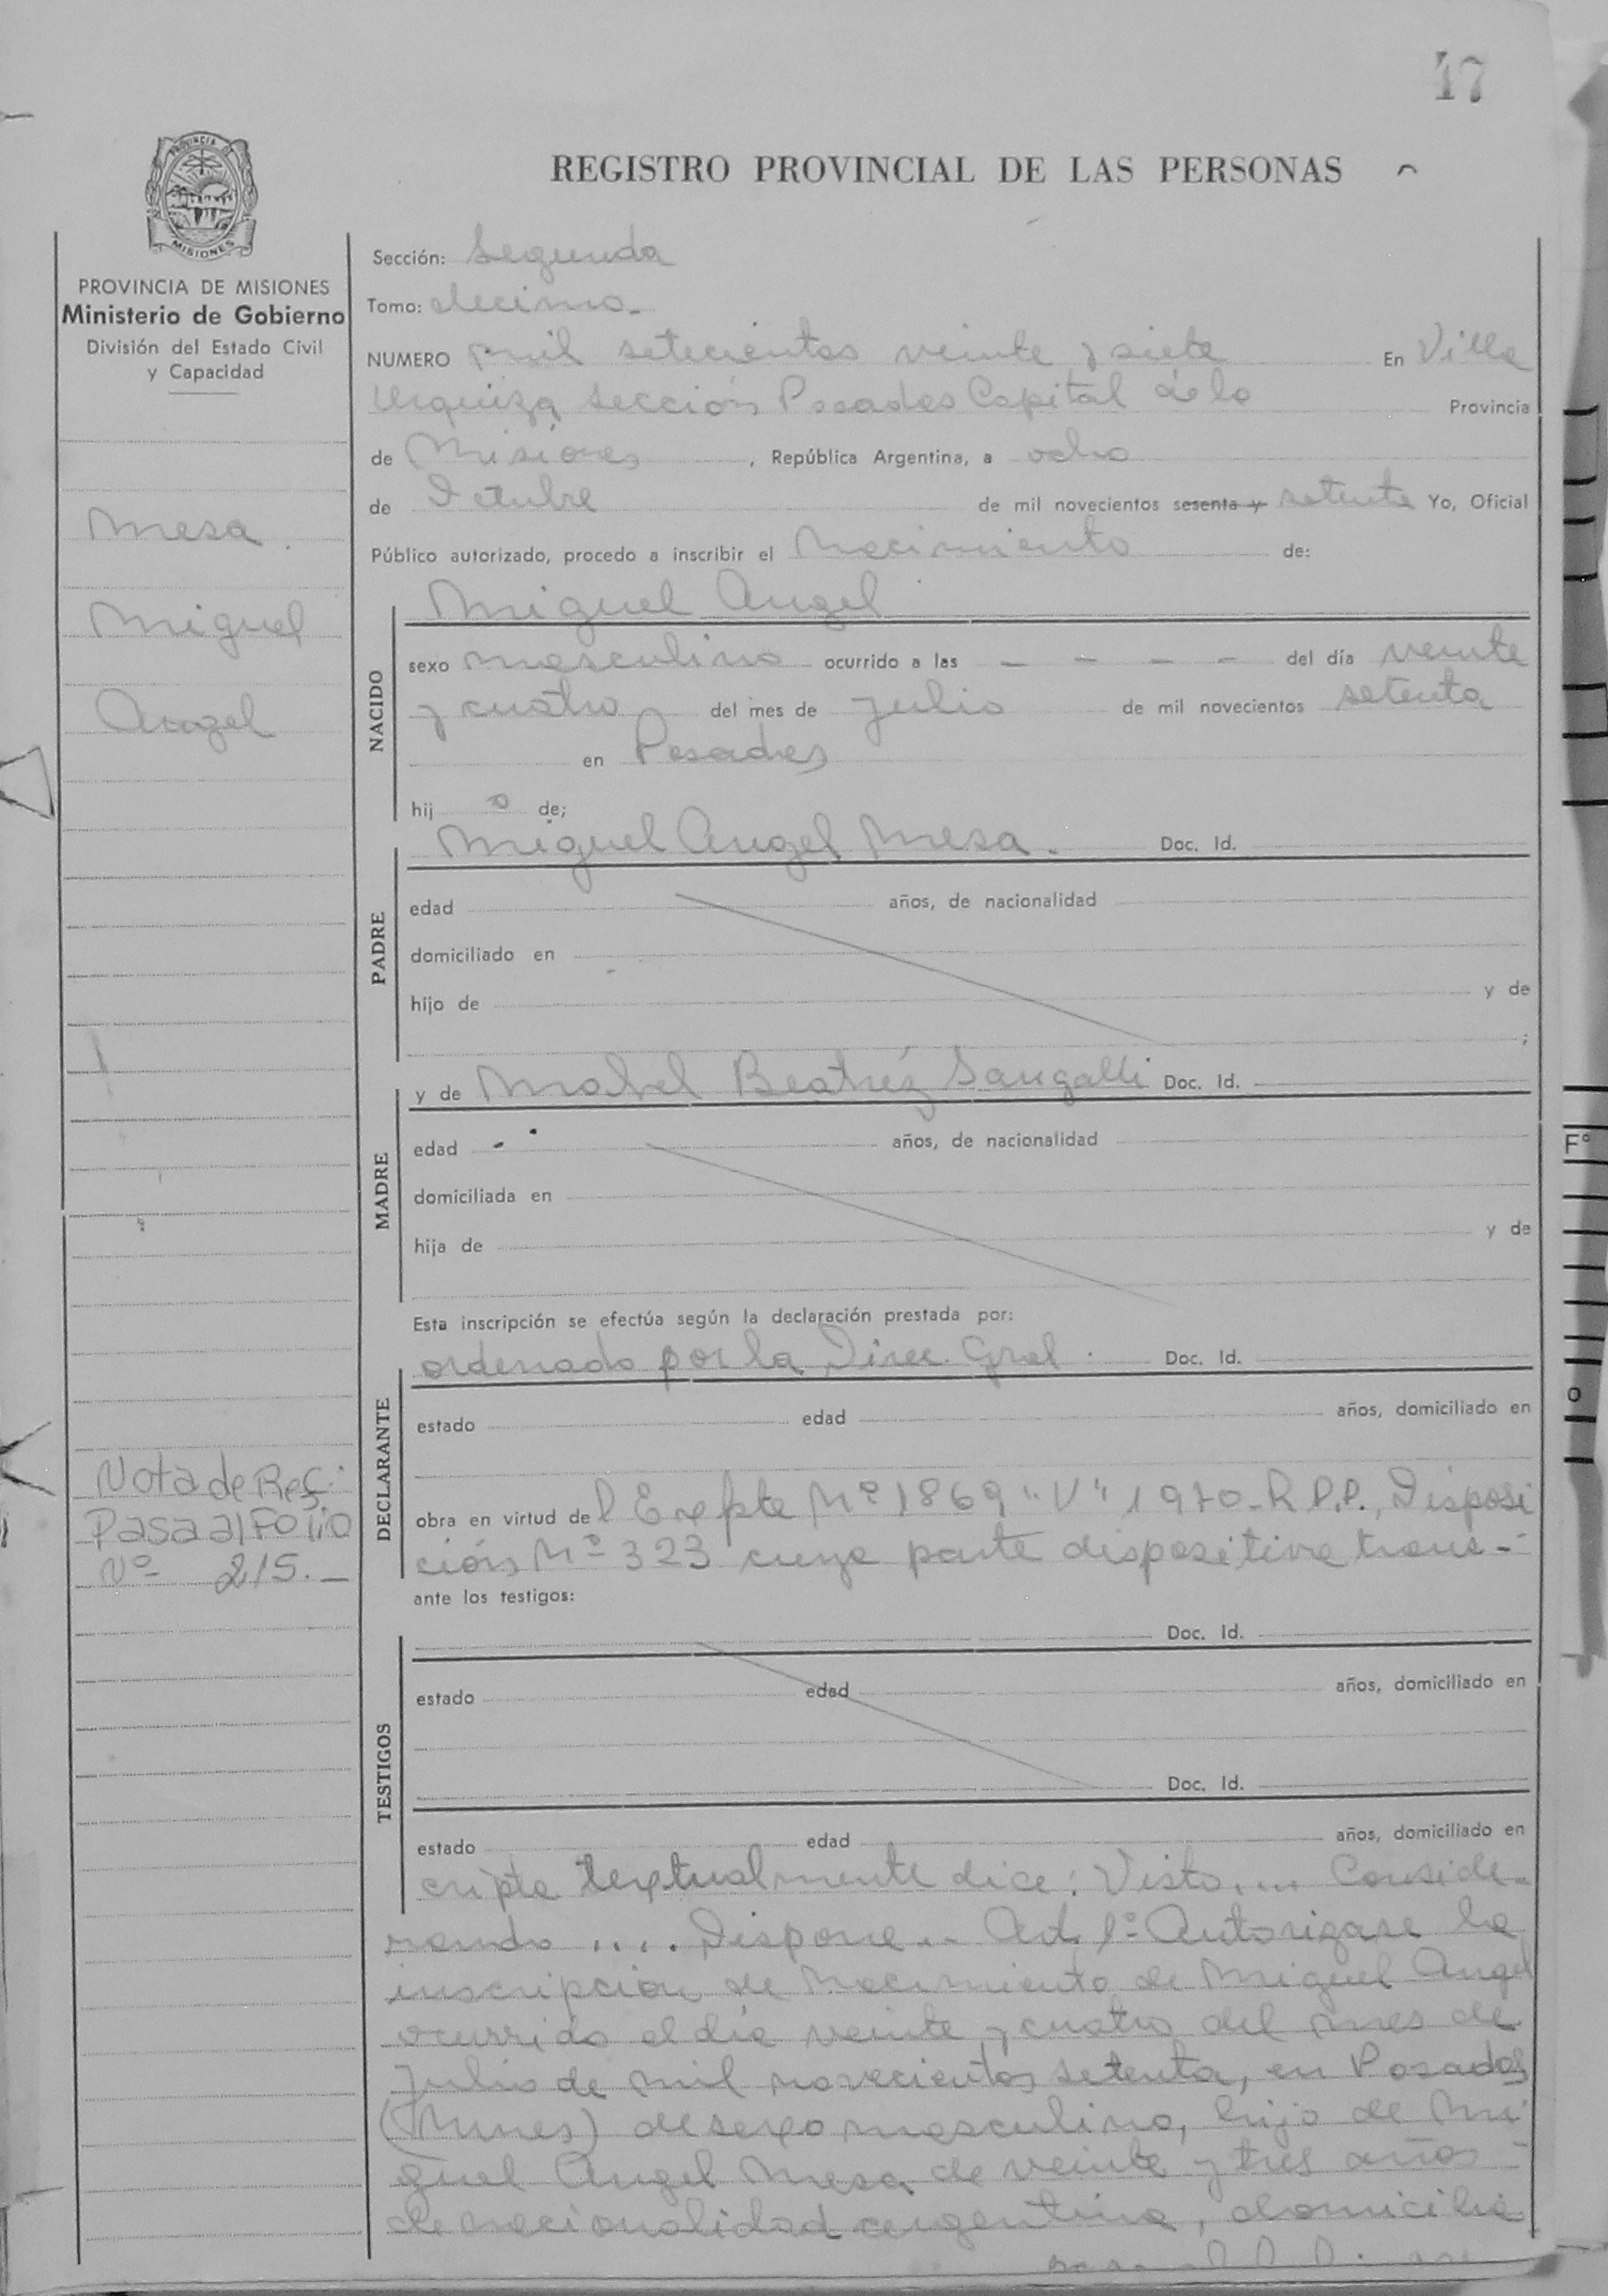 47
REGISTRO PROVINCIAL DE LAS PERSONAS
PROVINCIA DE
MISIONES
PROVINCIA DE MISIONES
Ministerio de Gobierno
División del Estado Civil
y Capacidad
Mesa
Miguel
Angel
Nota de Ref:
Pasa al Folio
Nº 215.-
Sección: Segunda
Tomo: decimo.
NUMERO mil setecientos veinte y siete En Villa
Urquiza sección Posadas Capital de la Provincia
de Misiones, República Argentina, a ocho
de Octubre de mil novecientos sesenta y setenta Yo, Oficial
Público autorizado, procedo a inscribir el Nacimiento de:
NACIDO
Miguel Angel
sexo masculino ocurrido a las - - - - del día veinte
y cuatro del mes de Julio de mil novecientos setenta
en Posadas
hij o de;
PADRE
Miguel Angel Mesa. Doc. Id.
edad años, de nacionalidad
domiciliado en
hijo de y de
;
MADRE
y de Mabel Beatríz Sangalli Doc. Id.
edad años, de nacionalidad
domiciliada en
hija de y de
Esta inscripción se efectúa según la declaración prestada por:
DECLARANTE
ordenado por la Direc. Gral. Doc. Id.
estado edad años, domiciliado en
obra en virtud del Expte Nº 1869 "V" 1970-R.P.P., Disposi
ción Nº 323 cuya parte dispositiva trans-
ante los testigos:
TESTIGOS
Doc. Id.
estado edad años, domiciliado en
Doc. Id.
estado edad años, domiciliado en
cripta textualmente dice: Visto.... Conside-
rando .... Dispone.. Art. 1º Autorizase la
inscripción de Nacimiento de Miguel Angel
ocurrido el día veinte y cuatro del mes de
Julio de mil novecientos setenta, en Posadas
(Mnes) de sexo masculino, hijo de Mi
guel Angel Mesa de veinte y tres años -
de nacionalidad argentina, domicilia
Fº